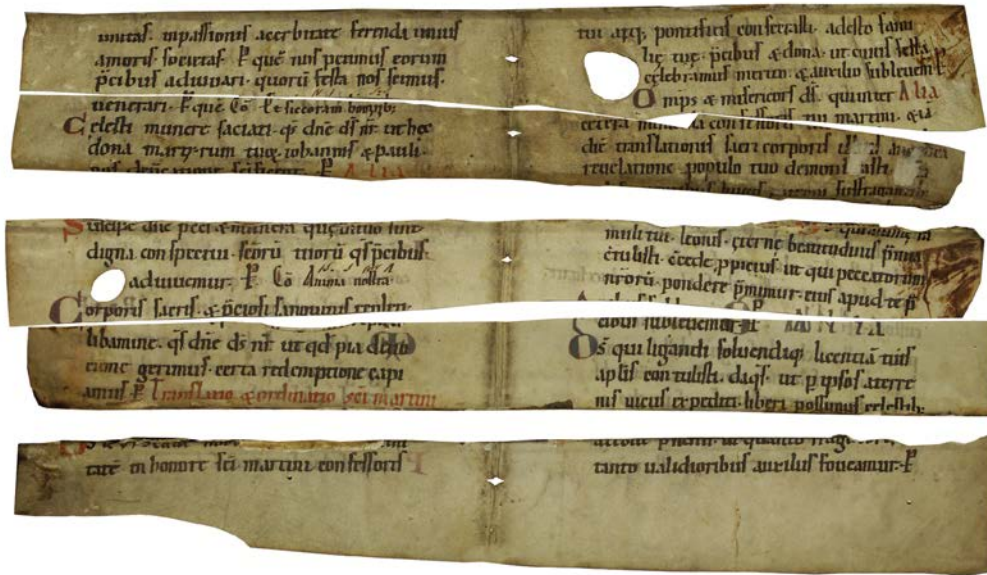 unitas. inpassionis acerbitate ferenda unius
amoris societas. P̄ quē n̄is petimus eorum
p̄cibus adiuuari. quorū festa nos scimus
uenerari. P̄ que Cō
Celesti munere saciati. q̄s dn̄e ds̄ nr̄ ut hec
dona martyrum tuoꝝ iohannis & pauli.
Alia
Suscipe dn̄e munera
digna conspectui. sc̄orū tuorū q̄s p̄cibus.
adiuuemur. P̄ Cō Anima nostra
Corporis sacri. & p̄ciosi sanguinis
libamine. q̄s dn̄e ds̄ nr̄ ut qd̄ pia
cione gerimus. certa redemptione capi
amus P̄ Translatio & ordinatio sc̄i martini
tatē in honore sc̄i martini confessoris
tui atq; pontificis consecrasti. adesto fami
lię tuę. p̄cibus & dona. ut cuius festa
celebramus meritis & auxilio subleuem̄
Omips & misericors ds̄. qui inter Alia
cetera confessoris tui martini.
che translationis sacri corporis
reuelatione populo tuo demonstrasti
muli tui. leonis. ęternę beatitudinis p̄mia
c̄tulisti. c̄cede p̄picius ut qui peccatorum
nr̄orū pondere p̄mimur. eius apud te p̄
cibus subleuemur. P̄ ALIA
Ds̄ qui ligandi soluendiq; licentiā tuis
apl̄is contulisti. daq̄s. ut p ipsos a terre
nis uiciis expediti. liberi possimus celestib;
tanto ualidioribus auxiliis foueamur. P̄